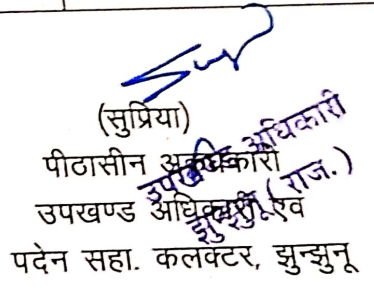 (सुप्रिया)
पीठासीन अधिकारी
उपखण्ड अधिकारी एवं
पदेन सहा. कलक्टर, झुन्झुनू
उपखण्ड अधिकारी
झुन्झुनू (राज.)